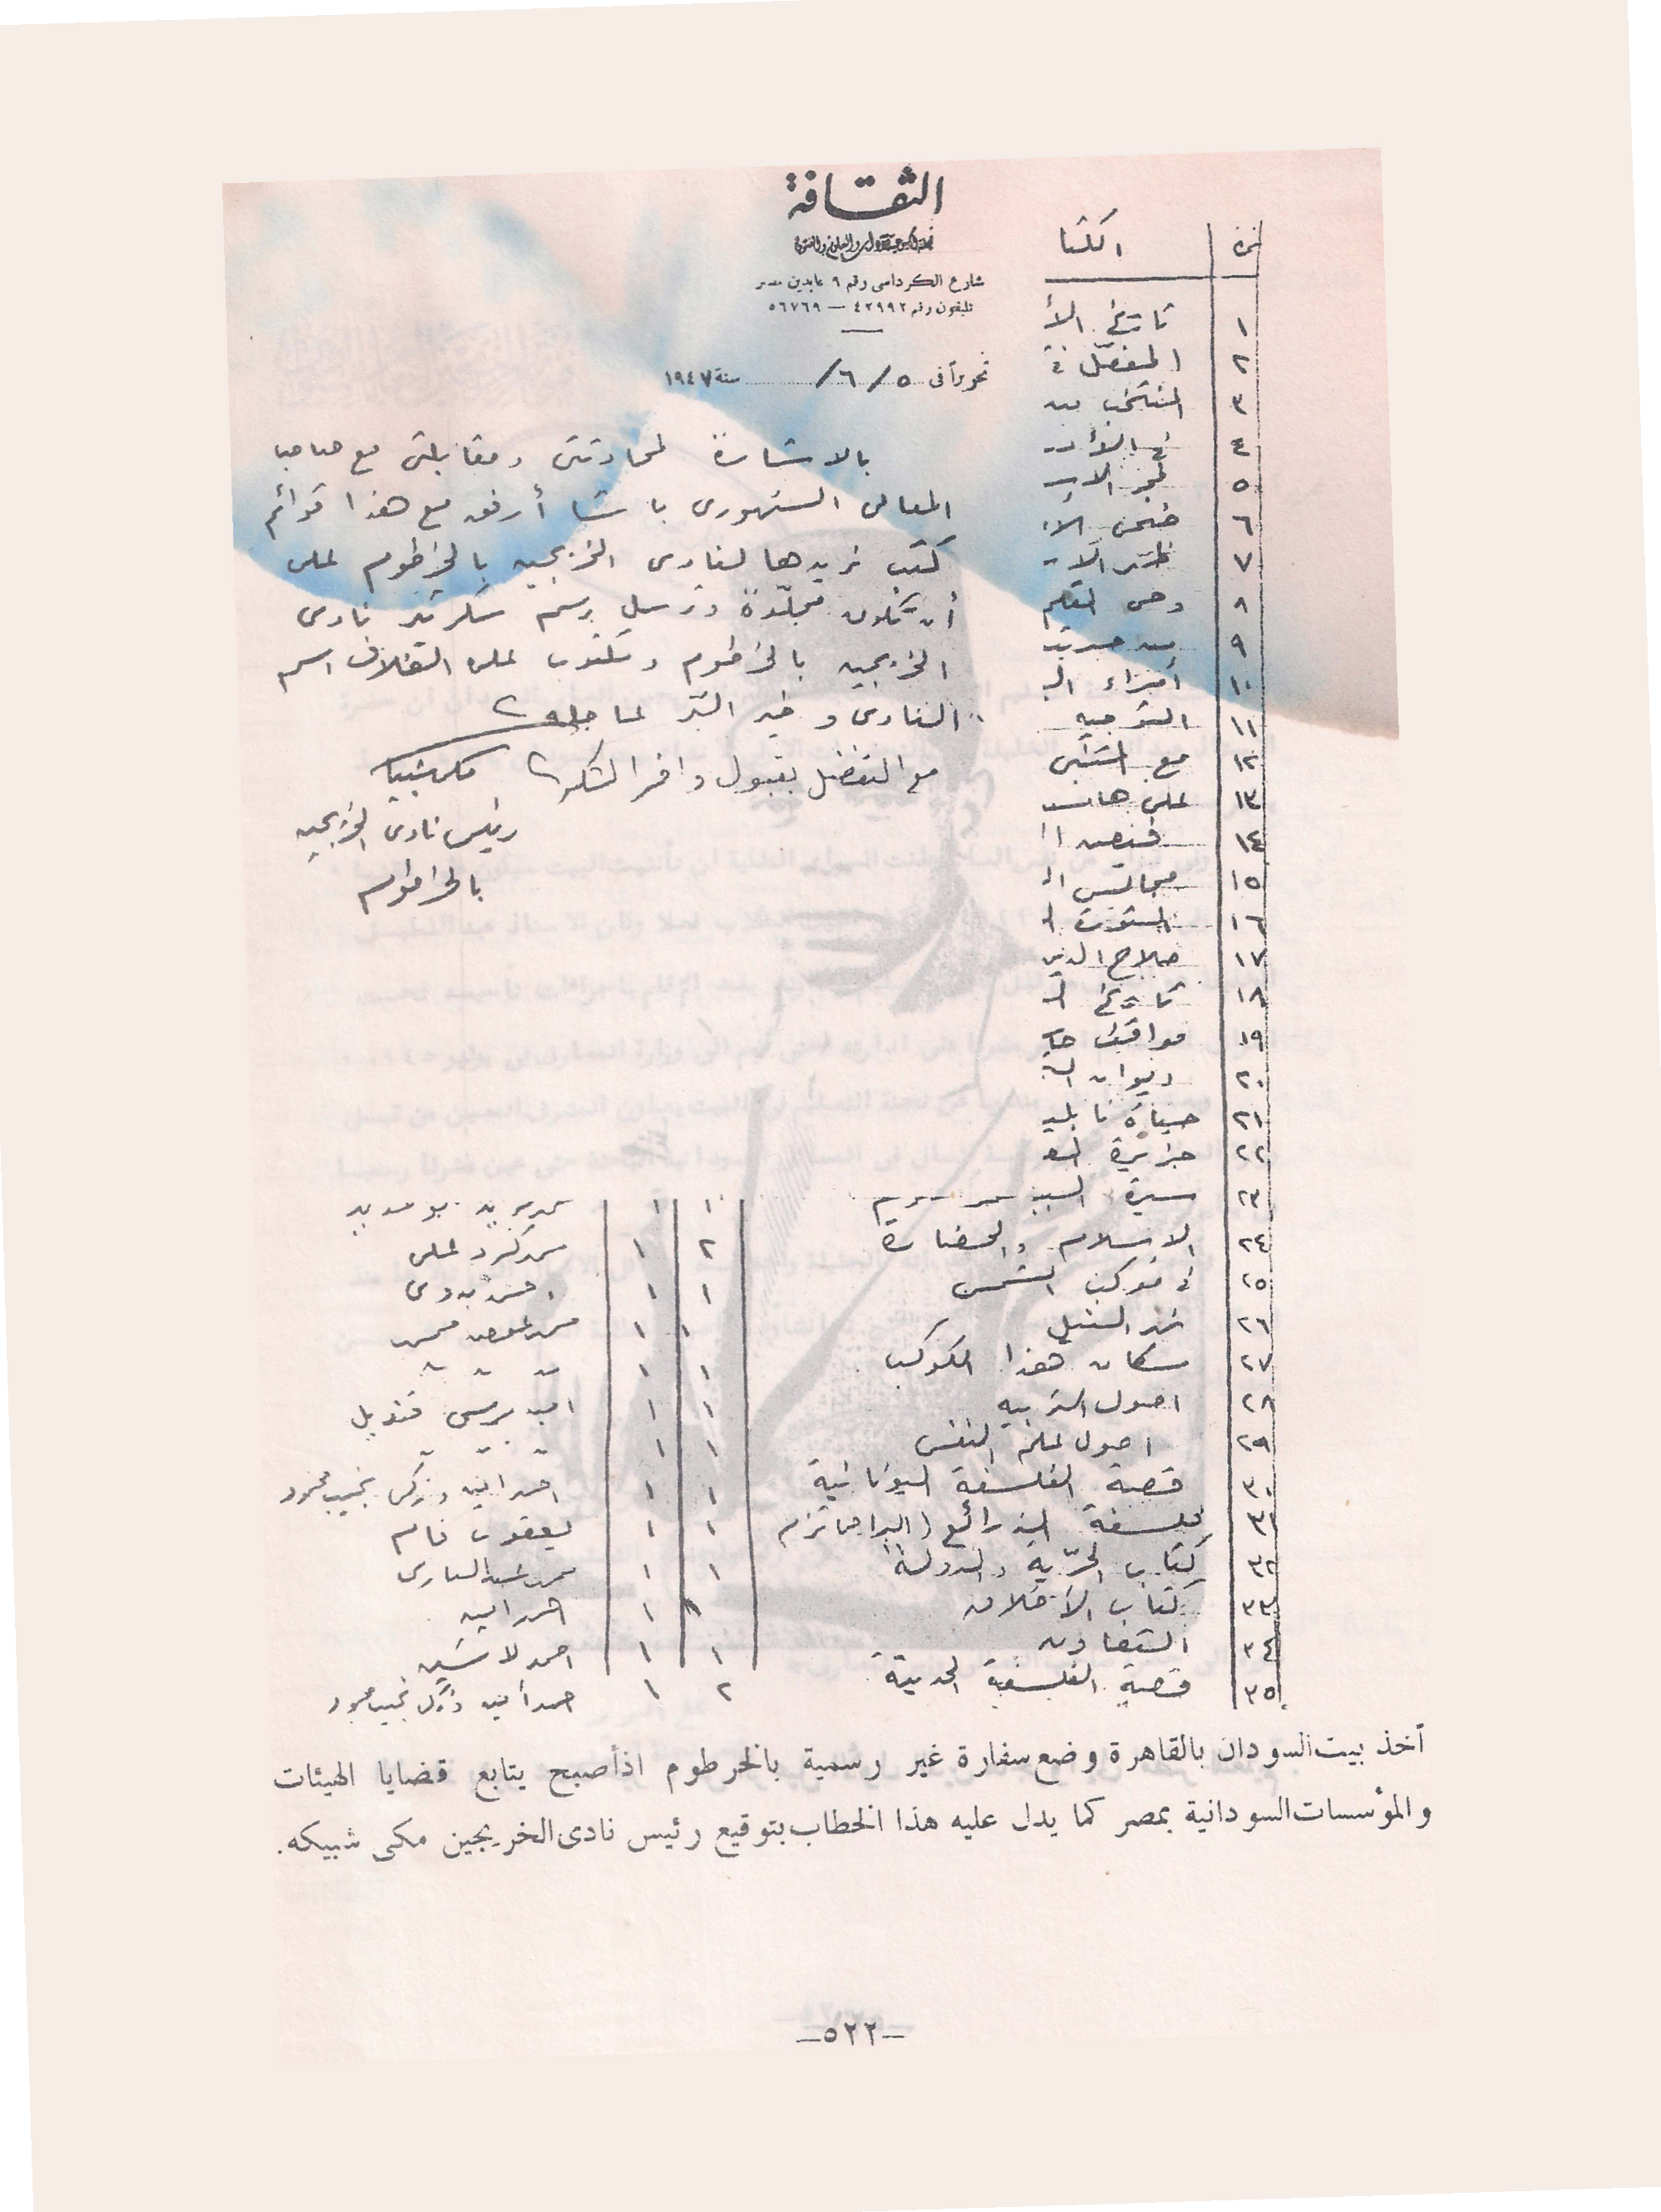 الثقافة
شارع الكرداسى رقم ٩ عابدين مصر
تليفون رقم ٤٢٩٩٢ — ٥٦٧٦٩
تحريرا فى ٥ / ٦ / سنة ١٩٤٧
بالاشارة لمحادثتى ومقابلتى مع صاحب
المعالى السنهورى باشا أرفق مع هذا قوائم
كتب نريدها لنادى الخريجين بالخرطوم على
أن تكون مجلّدة وترسل برسم سكرتير نادى
الخريجين بالخرطوم ومكتوب على الغلاف اسم
النادى و خير البر عاجله
مع التفضل بقبول وافر الشكر مكى شبيكه
رئيس نادى الخريجين
بالخرطوم
نمرة الكتا
١ تاريخ الأ
٢ المفصّل فى
٣ المنتخب من
٤ فى الأد
٥ فجر الاس
٦ ضحى الا
٧ ظهر الا
٨ وحى القلم
٩ من حديث
١٠ أمراء الب
١١ التوجيه
١٢ مع المتنبى
١٣ على هامش
١٤ قصص ا
١٥ مجالس ا
١٦ الثورة ا
١٧ صلاح الدين
١٨ تاريخ ا
١٩ مواقف حا
٢٠ ديوان ال
٢١ حياة نابلي
٢٢ جزيرة الع
٢٣ سيرة السيد ١ ١ محمد فريد ابو حديد
٢٤ الاسلام والحضارة ٢ ١ محمد كرد على
٢٥ فى موكب الشمس ١ ١ احمد بدوى
٢٦ نهر النيل ١ ١ محمد عوض محمد
٢٧ سكان هذا الكوكب ١ ١ " " "
٢٨ اصول التربيه ١ ١ امين مرسى قنديل
٢٩ اصول علم النفس ١ ١ " " "
٣٠ قصة الفلسفة اليونانية ١ ١ احمد امين وزكى نجيب محمود
٣١ فلسفة الذرائع (البراجماتزم ١ ١ يعقوب فام
٣٢ كتاب الحرّية والدولة ١ ١ محمد عبد البارى
٣٣ كتاب الأخلاق ١ ١ احمد امين
٣٤ التعاون ١ ١ احمد لاشين
٣٥ قصة الفلسفة الحديثة ٢ ١ احمد أمين وزكى نجيب محمود
أخذ بيت السودان بالقاهرة وضع سفارة غير رسمية بالخرطوم اذ أصبح يتابع قضايا الهيئات
والمؤسسات السودانية بمصر كما يدل عليه هذا الخطاب بتوقيع رئيس نادى الخريجين مكى شبيكه.
—٥٢٢—